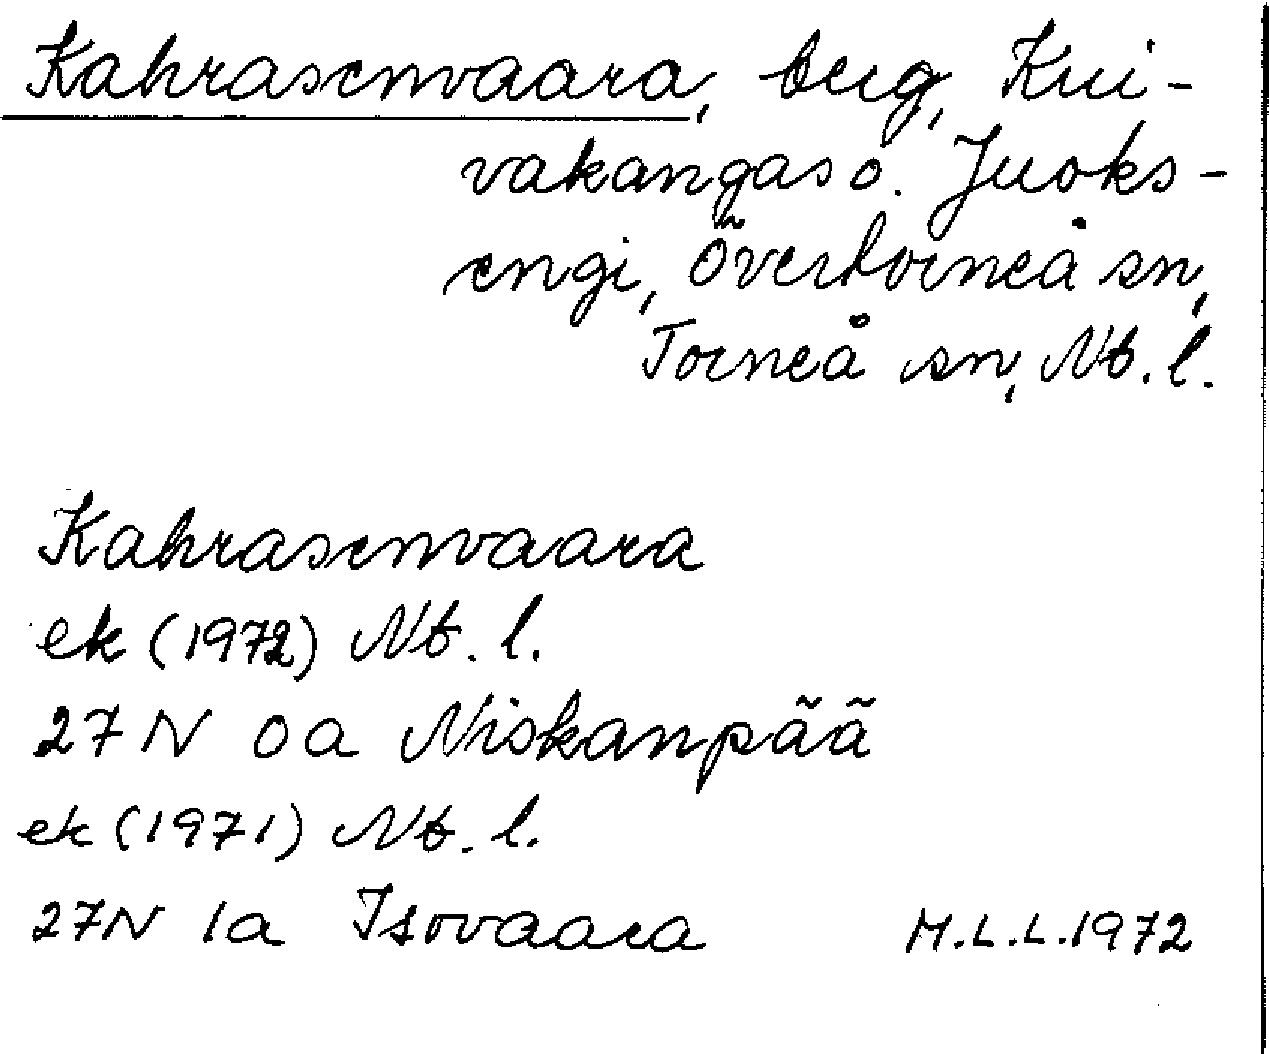 Kahrasenvaara, berg, Kui-
vakangas o. Juoks-
engi, Övertorneå sn,
Torneå sn, Nb. l.
Kahrasenvaara
ek (1972) Nb. l.
27 N 0a Niskanpää
ek (1971) Nb. l.
27N 1a Isovaara M.L.L.1972